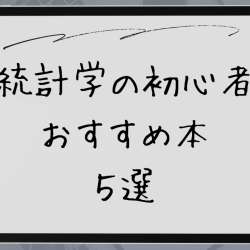 統計学の初心者
おすすめ本
5選